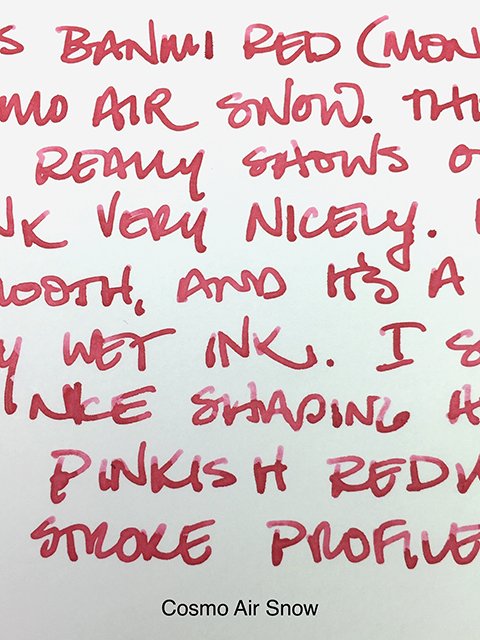 S BANMI RED (MON
MO AIR SNOW. THI
REALLY SHOWS O
NK VERY NICELY.
MOOTH, AND IT'S A
Y WET INK. I S
NICE SHADING H
PINKISH RED
STROKE PROFILE
Cosmo Air Snow